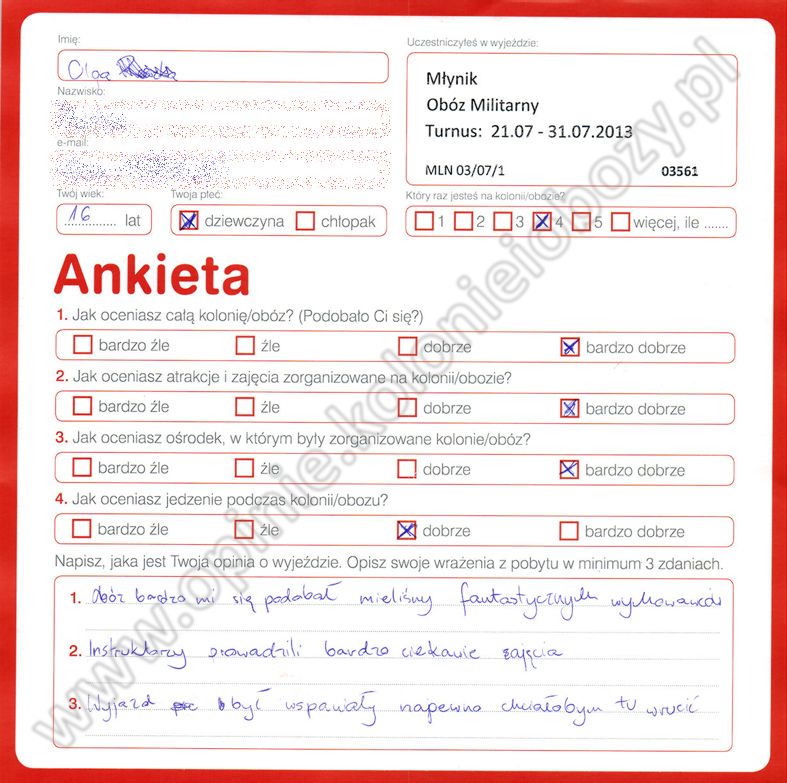 Imię:
Olga
Uczestniczyłeś w wyjeździe:
Młynik
Obóz Militarny
Turnus: 21.07 - 31.07.2013
MLN 03/07/1 03561
Nazwisko:
e-mail:
Twój wiek:
16 lat
Twoja płeć:
dziewczyna chłopak
Który raz jesteś na kolonii/obozie?
1 2 3 4 5 więcej, ile .......
Ankieta
1. Jak oceniasz całą kolonię/obóz? (Podobało Ci się?)
bardzo źle źle dobrze bardzo dobrze
2. Jak oceniasz atrakcje i zajęcia zorganizowane na kolonii/obozie?
bardzo źle źle dobrze bardzo dobrze
3. Jak oceniasz ośrodek, w którym były zorganizowane kolonie/obóz?
bardzo źle źle dobrze bardzo dobrze
4. Jak oceniasz jedzenie podczas kolonii/obozu?
bardzo źle źle dobrze bardzo dobrze
Napisz, jaka jest Twoja opinia o wyjeździe. Opisz swoje wrażenia z pobytu w minimum 3 zdaniach.
1. Obóz bardzo mi się podobał mieliśmy fantastycznych wychowawców
2. Instruktorzy prowadzili bardzo ciekawie zajęcia
3. Wyjazd był wspaniały napewno chciałobym tu wrócić
www.opinie.kolonieiobozy.pl